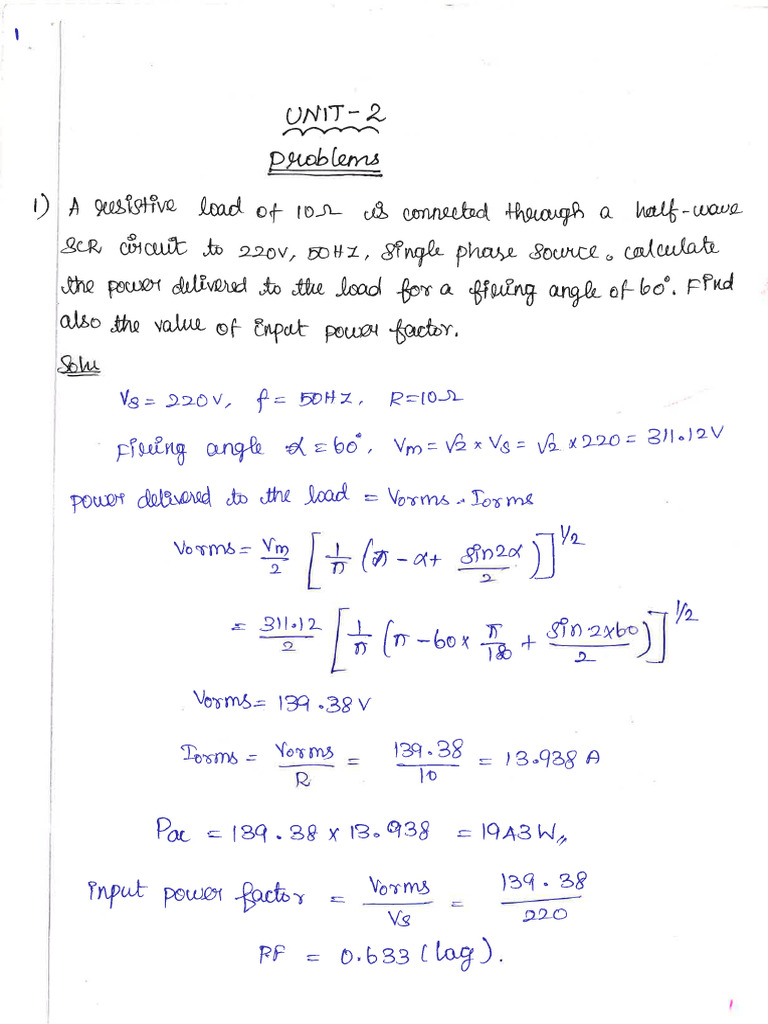 1
UNIT-2
Problems
1) A resistive load of 10Ω is connected through a half-wave
SCR circuit to 220V, 50HZ, single phase source. calculate
the power delivered to the load for a firing angle of 60°. Find
also the value of input power factor.
Solu
Vs = 220V, f = 50HZ, R=10Ω
Firing angle α = 60°, Vm = √2 × Vs = √2 × 220 = 311.12V
power delivered to the load = Vorms . Iorms
Vorms = Vm/2 [1/π (π - α + sin2α/2)]^1/2
= 311.12/2 [1/π (π - 60 × π/180 + sin 2×60/2)]^1/2
Vorms = 139.38V
Iorms = Vorms/R = 139.38/10 = 13.938 A
Pac = 139.38 × 13.938 = 19A3 W,,
input power factor = Vorms/Vs = 139.38/220
PF = 0.633 (lag).
1